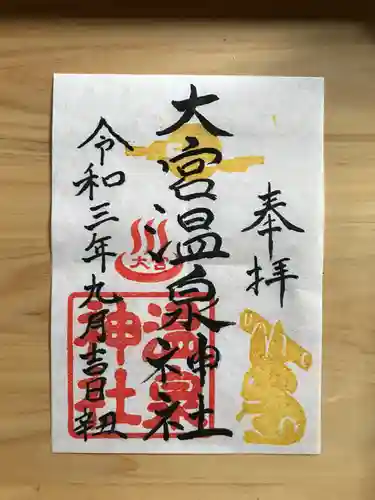 奉拝
大宮温泉神社
令和三年九月吉日
大宮
温泉
神社